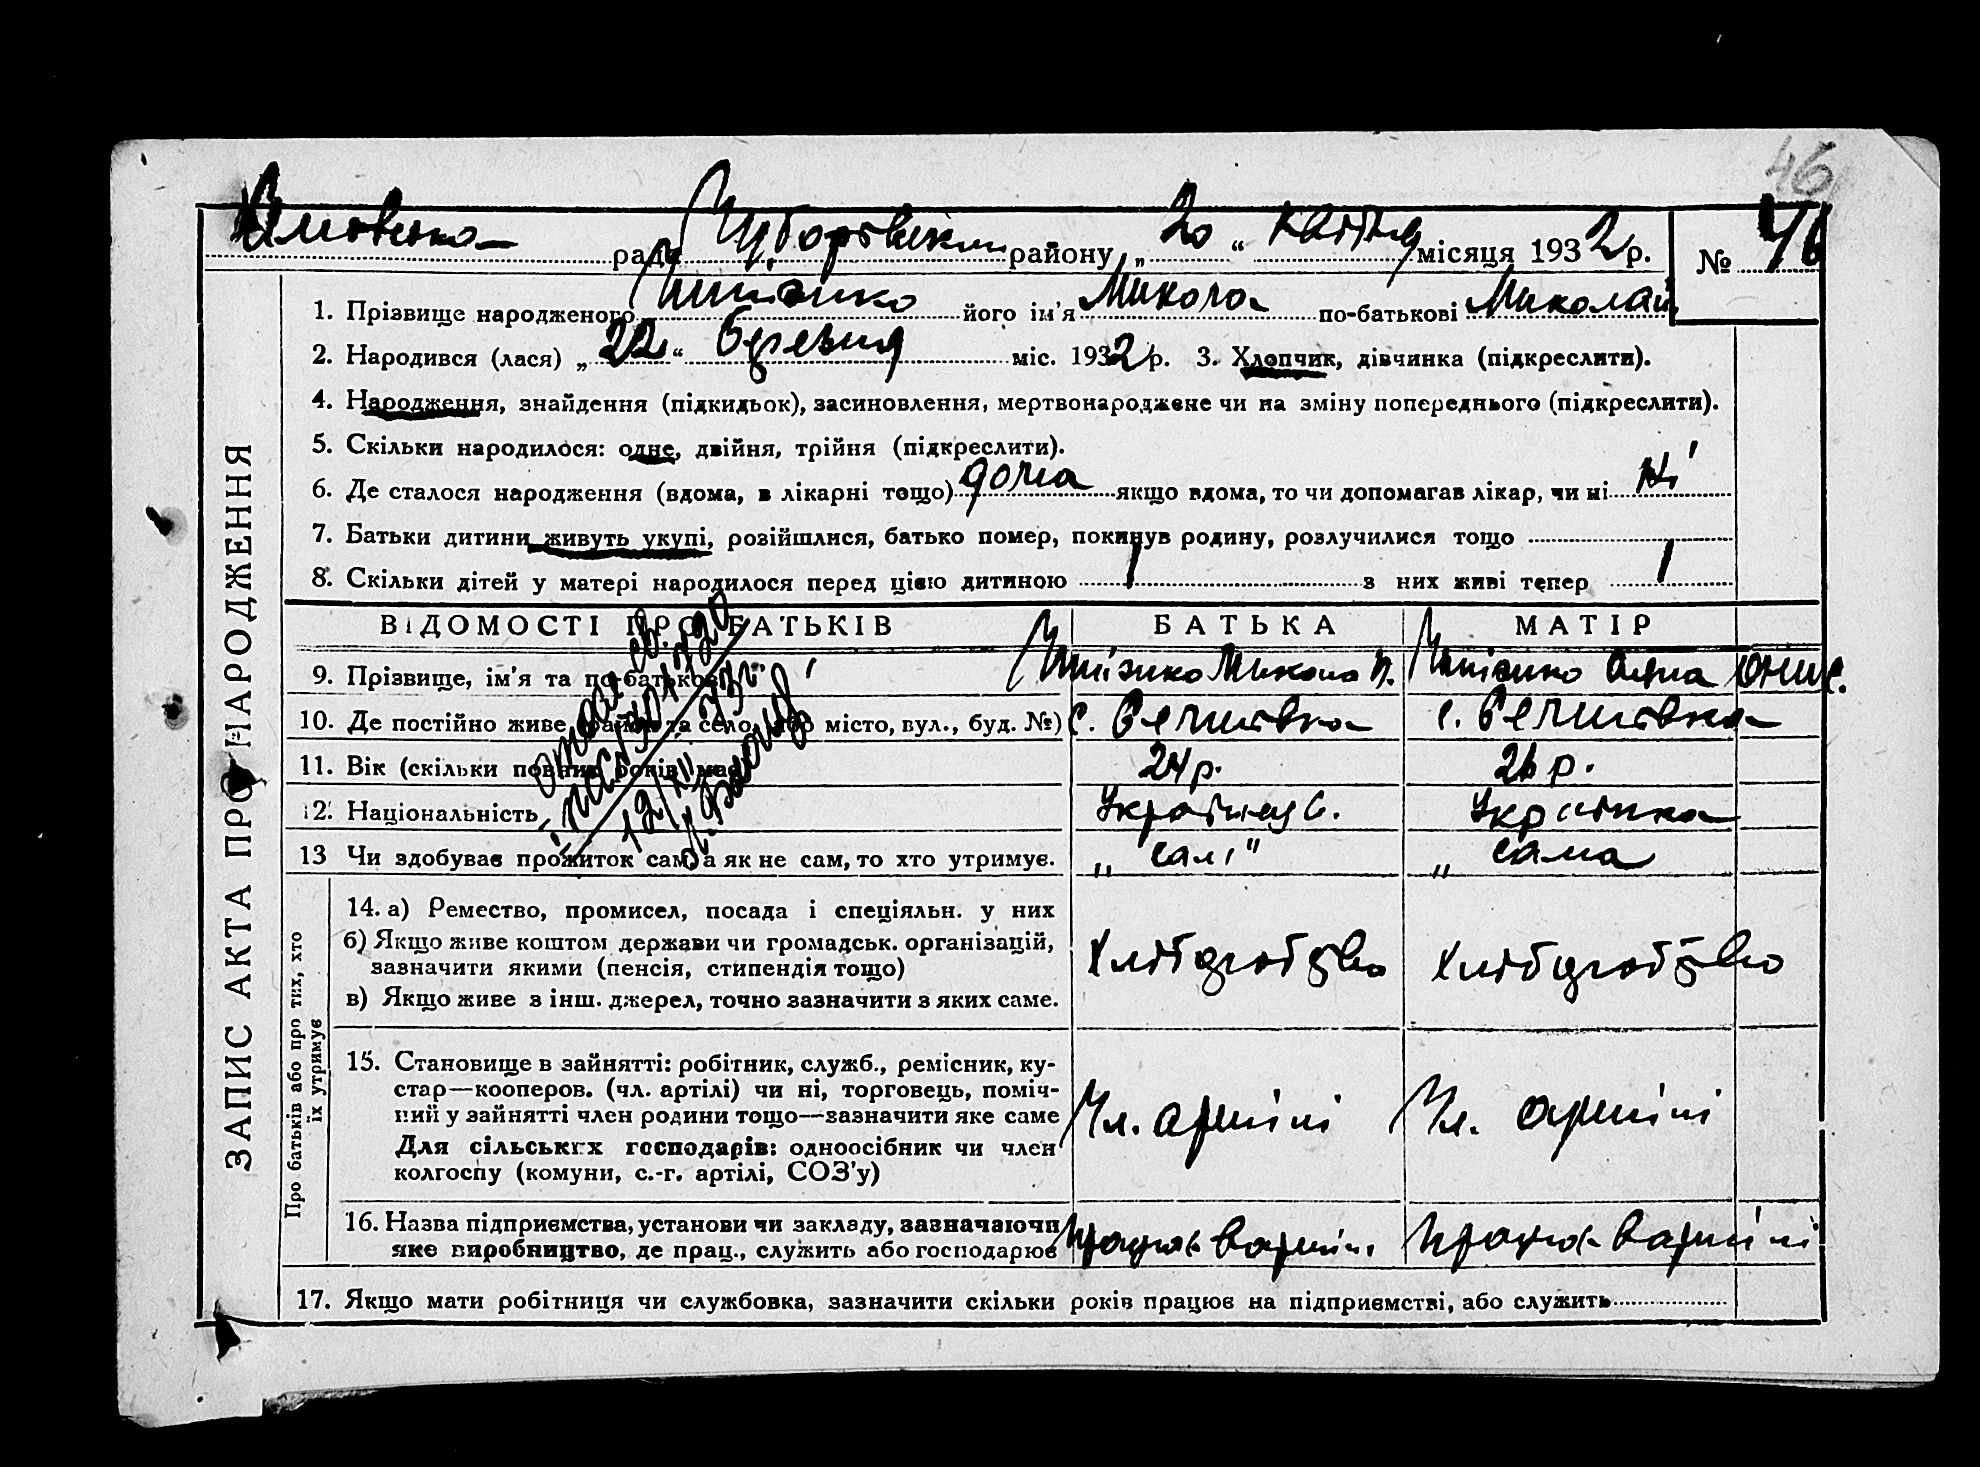 46
рада району „ 20 “ квітня місяця 1932 р. № 46
1. Прізвище народженого його ім'я Микола по-батькові Миколай
2. Народився (лася) „ 22 “ березня міс. 1932 р. 3. Хлопчик, дівчинка (підкреслити).
4. Народження, знайдення (підкидьок), засиновлення, мертвонароджене чи на зміну попереднього (підкреслити).
5. Скільки народилося: одне, двійня, трійня (підкреслити).
6. Де сталося народження (вдома, в лікарні тощо) дома якщо вдома, то чи допомагав лікар, чи ні ні
7. Батьки дитини живуть укупі, розійшлися, батько помер, покинув родину, розлучилися тощо
8. Скільки дітей у матері народилося перед цією дитиною 1 з них живі тепер 1
ЗАПИС АКТА ПРО НАРОДЖЕННЯ
ВІДОМОСТІ ПРО БАТЬКІВ БАТЬКА МАТІР
9. Прізвище, ім'я та по-батькові Микола
10. Де постійно живе (район та село, або місто, вул., буд. №) с. с.
11. Вік (скільки повних років має) 24 р. 26 р.
12. Національність Українец С. Українка
13 Чи здобуває прожиток сам, а як не сам, то хто утримує. „ самі “ „ сама
Про батьків або про тих, хто їх утримує
14. а) Ремество, промисел, посада і спеціяльн. у них
б) Якщо живе коштом держави чи громадськ. організацій,
зазначити якими (пенсія, стипендія тощо) Хлібдробство Хлібдробство
в) Якщо живе з інш. джерел, точно зазначити з яких саме.
15. Становище в зайнятті: робітник, служб., ремісник, ку-
стар—кооперов. (чл. артілі) чи ні, торговець, поміч-
ний у зайнятті член родини тощо—зазначити яке саме Чл. артілі Чл. артілі
Для сільських господарів: одноосібник чи член
колгоспу (комуни, с.-г. артілі, СОЗ'у)
16. Назва підприємства, установи чи закладу, зазначаючи
яке виробництво, де прац., служить або господарює працює в артілі працює в артілі
17. Якщо мати робітниця чи службовка, зазначити скільки років працює на підприємстві, або служить